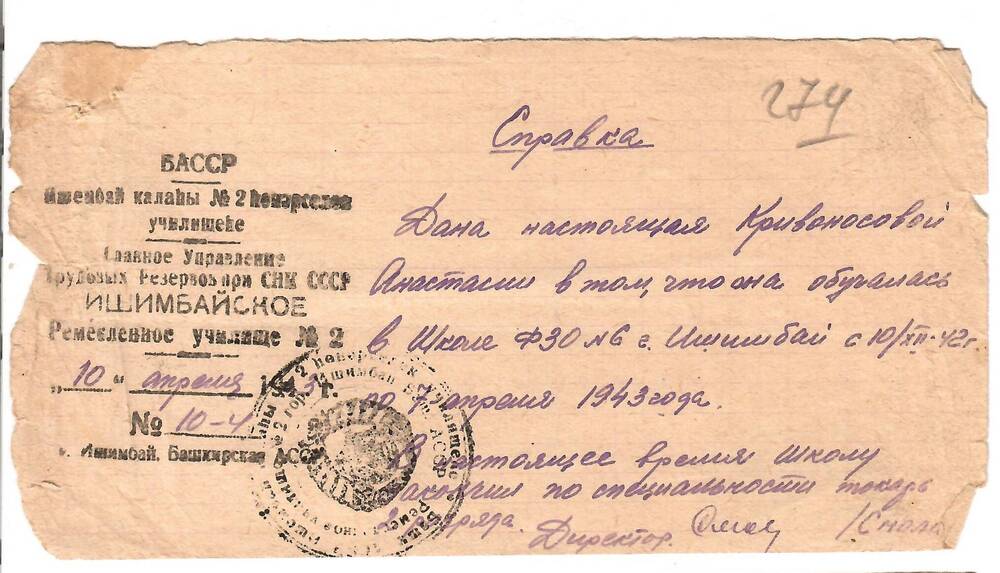 274
Справка
БАССР
Ишембай калаһы № 2 һөнәрселек
училищеһе
Главное Управление
Трудовых Резервов при СНК СССР
ИШИМБАЙСКОЕ
Ремесленное училище № 2
„10“ апреля г.
№ 10-4
г. Ишимбай, Башкирская АССР
Дана настоящая Кривоносовой
Анастасии в том, что она обучалась
в Школе ФЗО №6 г. Ишимбай с 10/XII-42г.
по 7 апреля 1943 года.
В настоящее время школу
закончил по специальности токарь
2 разряда.
Директор.